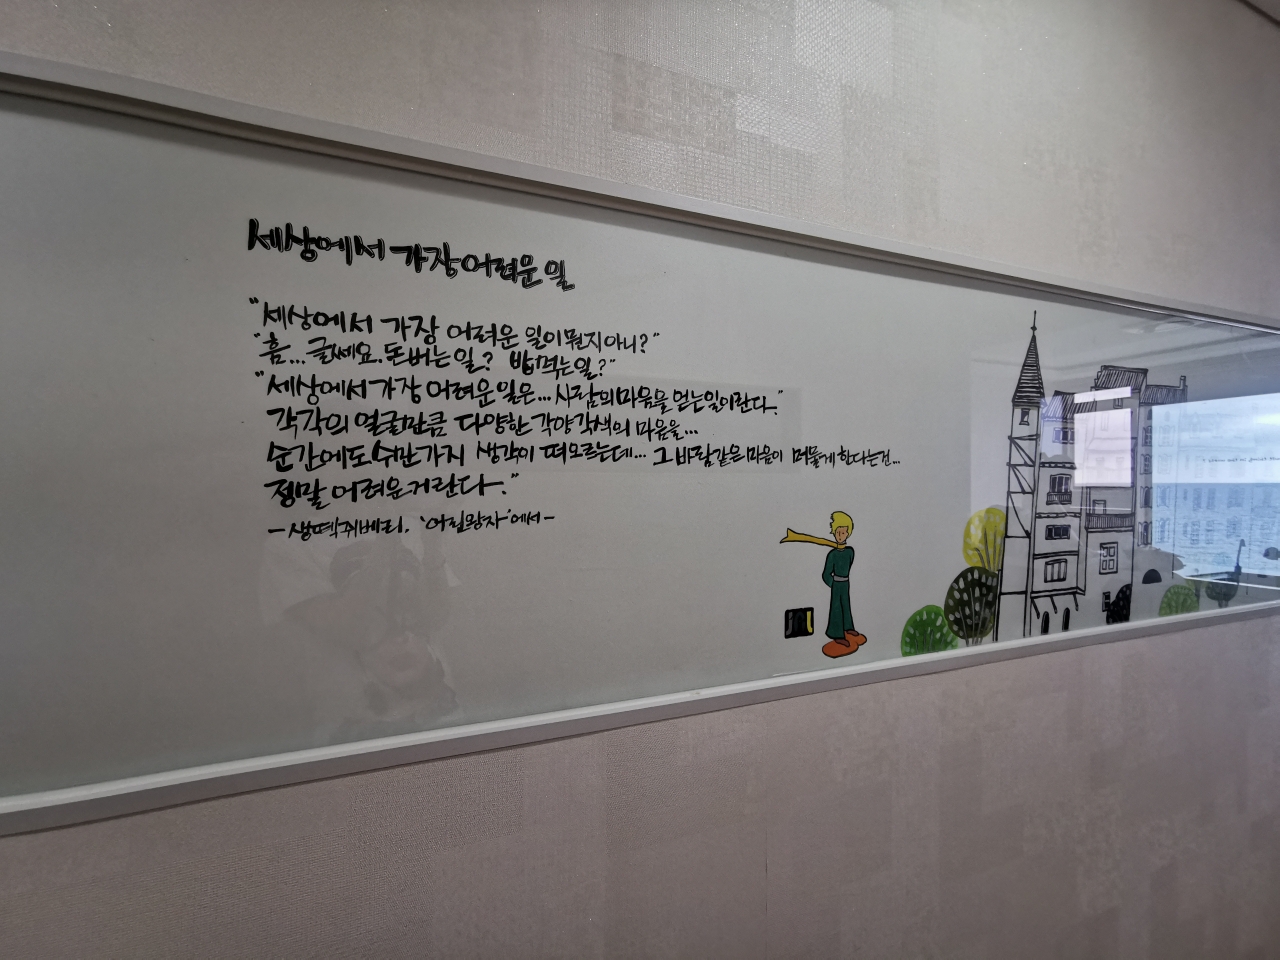 세상에서 가장 어려운 일
"세상에서 가장 어려운 일이 뭔지 아니?"
"흠... 글쎄요. 돈버는 일? 밥먹는 일?"
"세상에서 가장 어려운 일은... 사람의 마음을 얻는 일이란다."
각각의 얼굴만큼 다양한 각양각색의 마음을...
순간에도 수만가지 생각이 떠오르는데... 그 바람같은 마음이 머물게 한다는건...
정말 어려운거란다."
- 생떽쥐베리. '어린왕자'에서 -